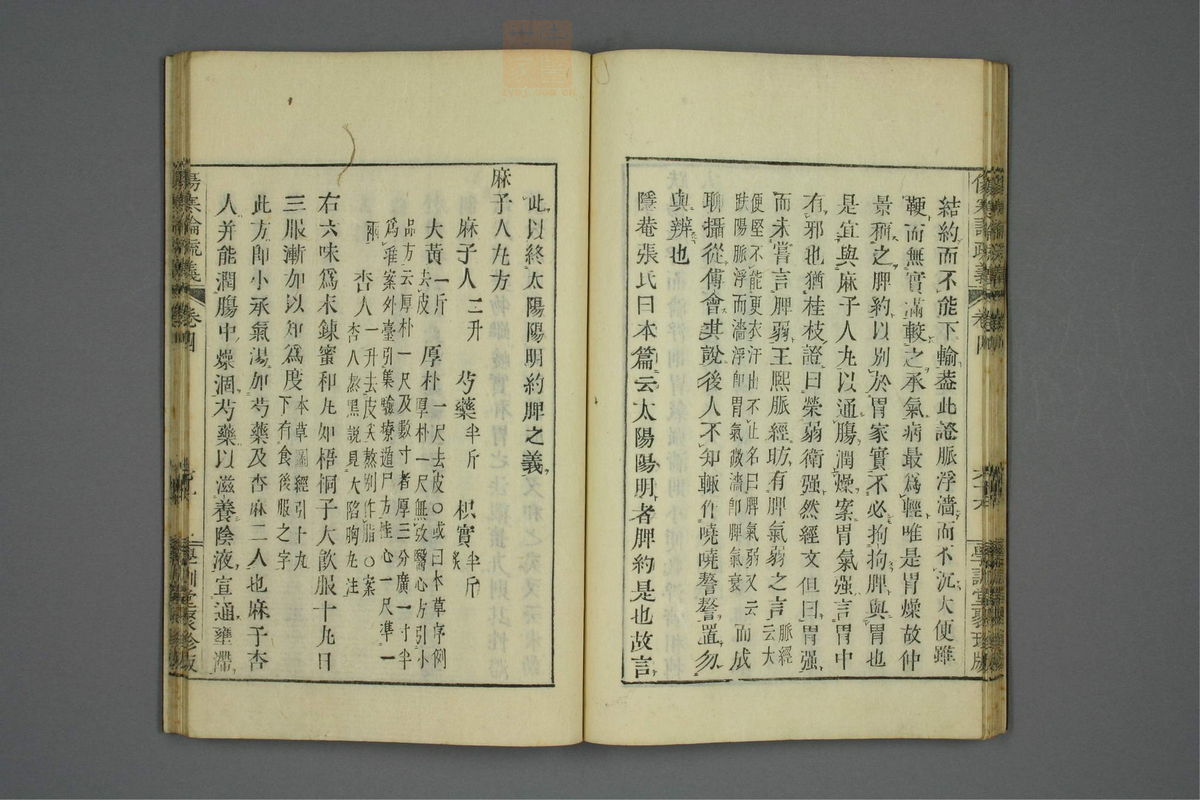 結約而不能下輸葢此證脈浮濇而不沉大便雖
鞕而無實滿較之承氣病最爲輕唯是胃燥故仲
景稱之脾約以別於胃家實不必拘拘脾與胃也
是宜與麻子人丸以通腸潤燥案胃氣强言胃中
有邪也猶桂枝證曰榮弱衛强然經文但曰胃强
而未嘗言脾弱王熙脈經昉有脾氣弱之言脈經云大
便堅不能更衣汗出不止名曰脾氣弱又云
趺陽脈浮而濇浮卽胃氣微濇卽脾氣衰而成
聊攝從傅會其說後人不知輙作嘵嘵謷謷置勿
與辨也
隱菴張氏曰本篇云太陽陽明者脾約是也故言
傷寒論疏義
卷四
學訓堂聚珍版
此以終太陽陽明約脾之義
麻子人丸方
麻子人二升
芍藥半斤
枳實半斤炙
大黃一斤去皮
厚朴一尺去皮○或曰本草序例
厚朴一尺無攷醫心方引小
品方云厚朴一尺及數寸者厚三分廣一寸半
爲准案外臺引集驗療遁尸方桂心一尺準一
兩
杏人一升去皮尖熬別作脂○案
杏人熬黑說見大陷胸丸注
右六味爲末鍊蜜和丸如梧桐子大飮服十丸日
三服漸加以知爲度本草圖經引十丸
下有食後服之字
此方卽小承氣湯加芍藥及杏麻二人也麻子杏
人并能潤腸中燥涸芍藥以滋養陰液宣通壅滯
傷寒論疏義
卷四
學訓堂聚珍版